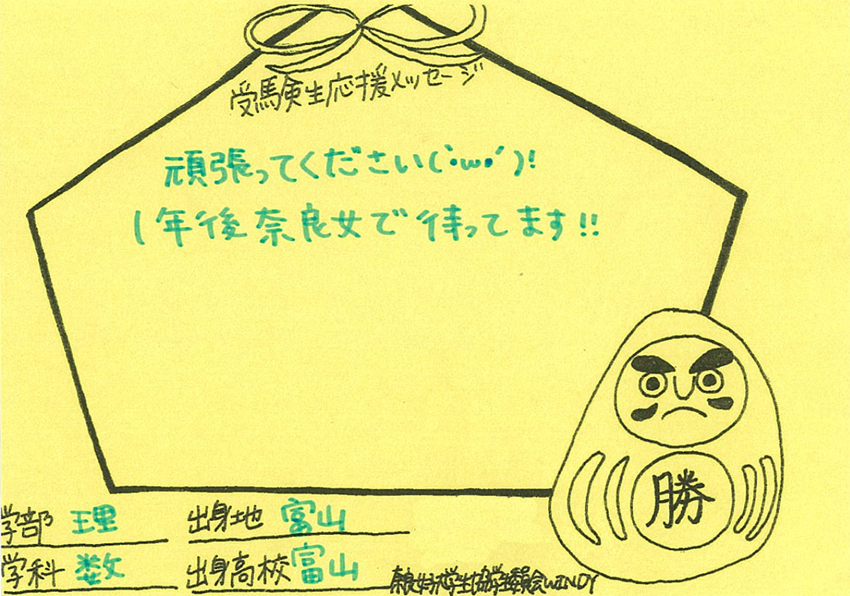 受験生応援メッセージ
頑張ってください(`・ω・´)!
1年後奈良女で待ってます!!
勝
学部 理
出身地 富山
学科 数
出身高校 富山
奈良女子大学生協学生委員会WINDY